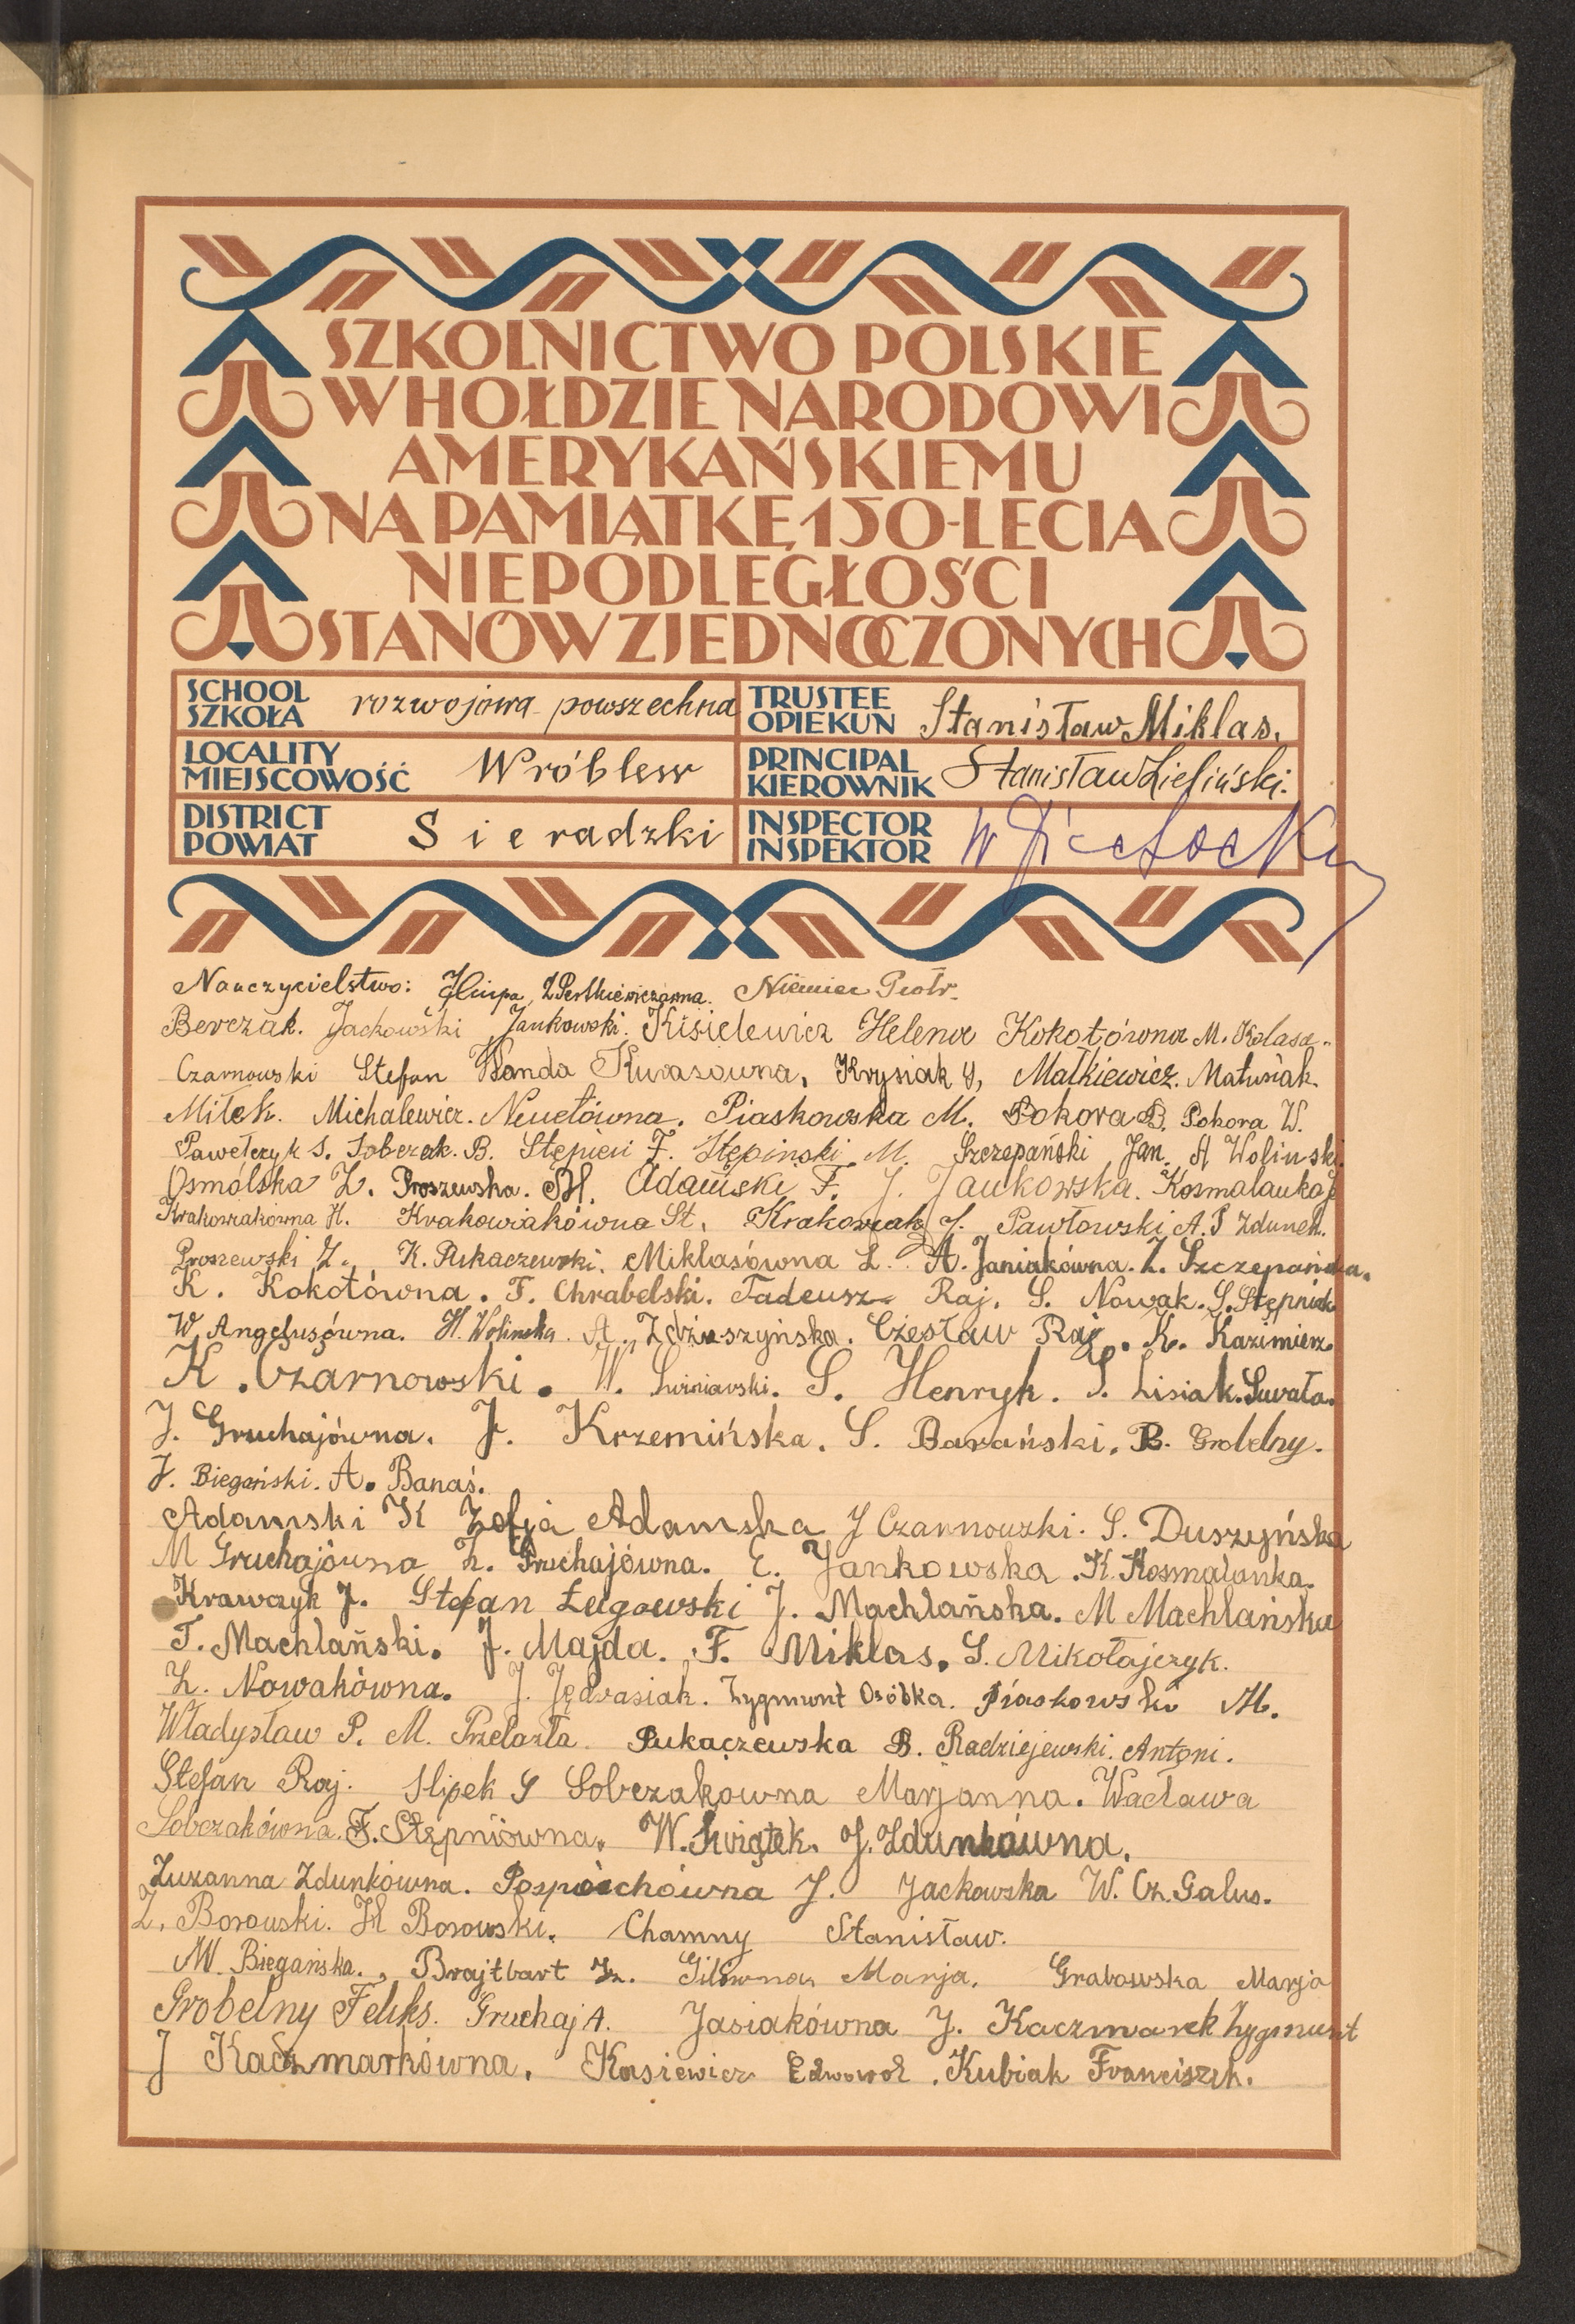 SZKOLNICTWO POLSKIE
W HOŁDZIE NARODOWI
AMERYKAŃSKIEMU
NA PAMIĄTKĘ 150-LECIA
NIEPODLEGŁOŚCI
STANÓW ZJEDNOCZONYCH
SCHOOL
SZKOŁA
rozwojowa powszechna
TRUSTEE
OPIEKUN
Stanisław Miklas.
LOCALITY
MIEJSCOWOŚĆ
Wróblew
PRINCIPAL
KIEROWNIK
Stanisław Zieliński.
DISTRICT
POWIAT
Sieradzki
INSPECTOR
INSPEKTOR
Nauczycielstwo: Niemiec Piotr.
Berczak. Jackowski Jankowski. Kisielewicz Helena Kokotówna M. Kolasa.
Czarnowski Stefan Wanda Kurasówna, Krysiak J, Małkiewicz. Matusiak.
Miłek. Michalewicz. Piaskowska M. Pokora B. Pokora W.
Pawełczyk S. Sobczak. B. Stępień F. Stępiński M. Szczepański Jan. A Woliński.
Osmólska Z. Proszewska. M. Adamski F. J. Jankowska. Kosmalanka J
Krakowiakówna H. Krakowiakówna St. Krakowiak J. Pawłowski A. S Zdunek.
Proszewski Z., K. Pukaczewski. Miklasówna L. A. Janiakówna. Z. Szczepańska.
K. Kokotówna. F. Chrabelski. Tadeusz Raj. S. Nowak. S. Stępniak
W. Angelusówna. H. Wolinska. A. Zdziuszyńska. Czesław Raj. K. Kazimierz.
K. Czarnowski. W. Świniarski. S. Henryk. S. Lisiak. Suwała.
J. Gruchajówna. J. Krzemińska. S. Barański. B. Grobelny.
J. Biegański. A. Banaś.
Adamski K Zofja Adamska J Czarnowski. S. Duszyńska
M Gruchajówna Z. Gruchajówna. E. Jankowska. K. Kosmalanka.
Krawczyk J. Stefan Ługowski J. Machlańska. M Machlańska
T. Machlański. J. Majda. F. Miklas. S. Mikołajczyk.
Z. Nowakówna. J. Jędrasiak. Zygmunt Osóbka. Piaskowski M.
Władysław P. M. Przelazła. Pukaczewska B. Radziejewski. Antoni.
Stefan Raj. Slipek S Sobczakówna Marjanna. Wacława
Sobczakówna. F. Stępniówna. W. Świątek. J. Zdunkówna.
Zuzanna Zdunkówna. Pospoichówna J. Jackowska W. Cz. Galus.
Z. Borowski. H Borowski. Chamny Stanisław.
M. Biegańska., Brajtbart Iz. Gilówna Marja. Grabowska Marja
Grobelny Feliks. Gruchaj A. Jasiakówna J. Kaczmarek Zygmunt
J Kaczmarkówna. Kasiewicz Edward. Kubiak Franciszk.